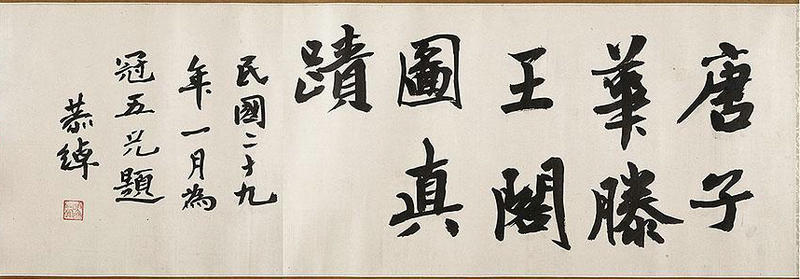 唐子
華滕
王閣
圖真
蹟
民國二十九
年一月為
冠五兄題
恭綽